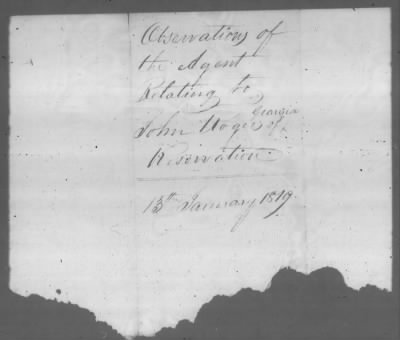 Observations of
the Agent
Relating to
Georgia
John Woge of
Reservation.
13th January 1819.